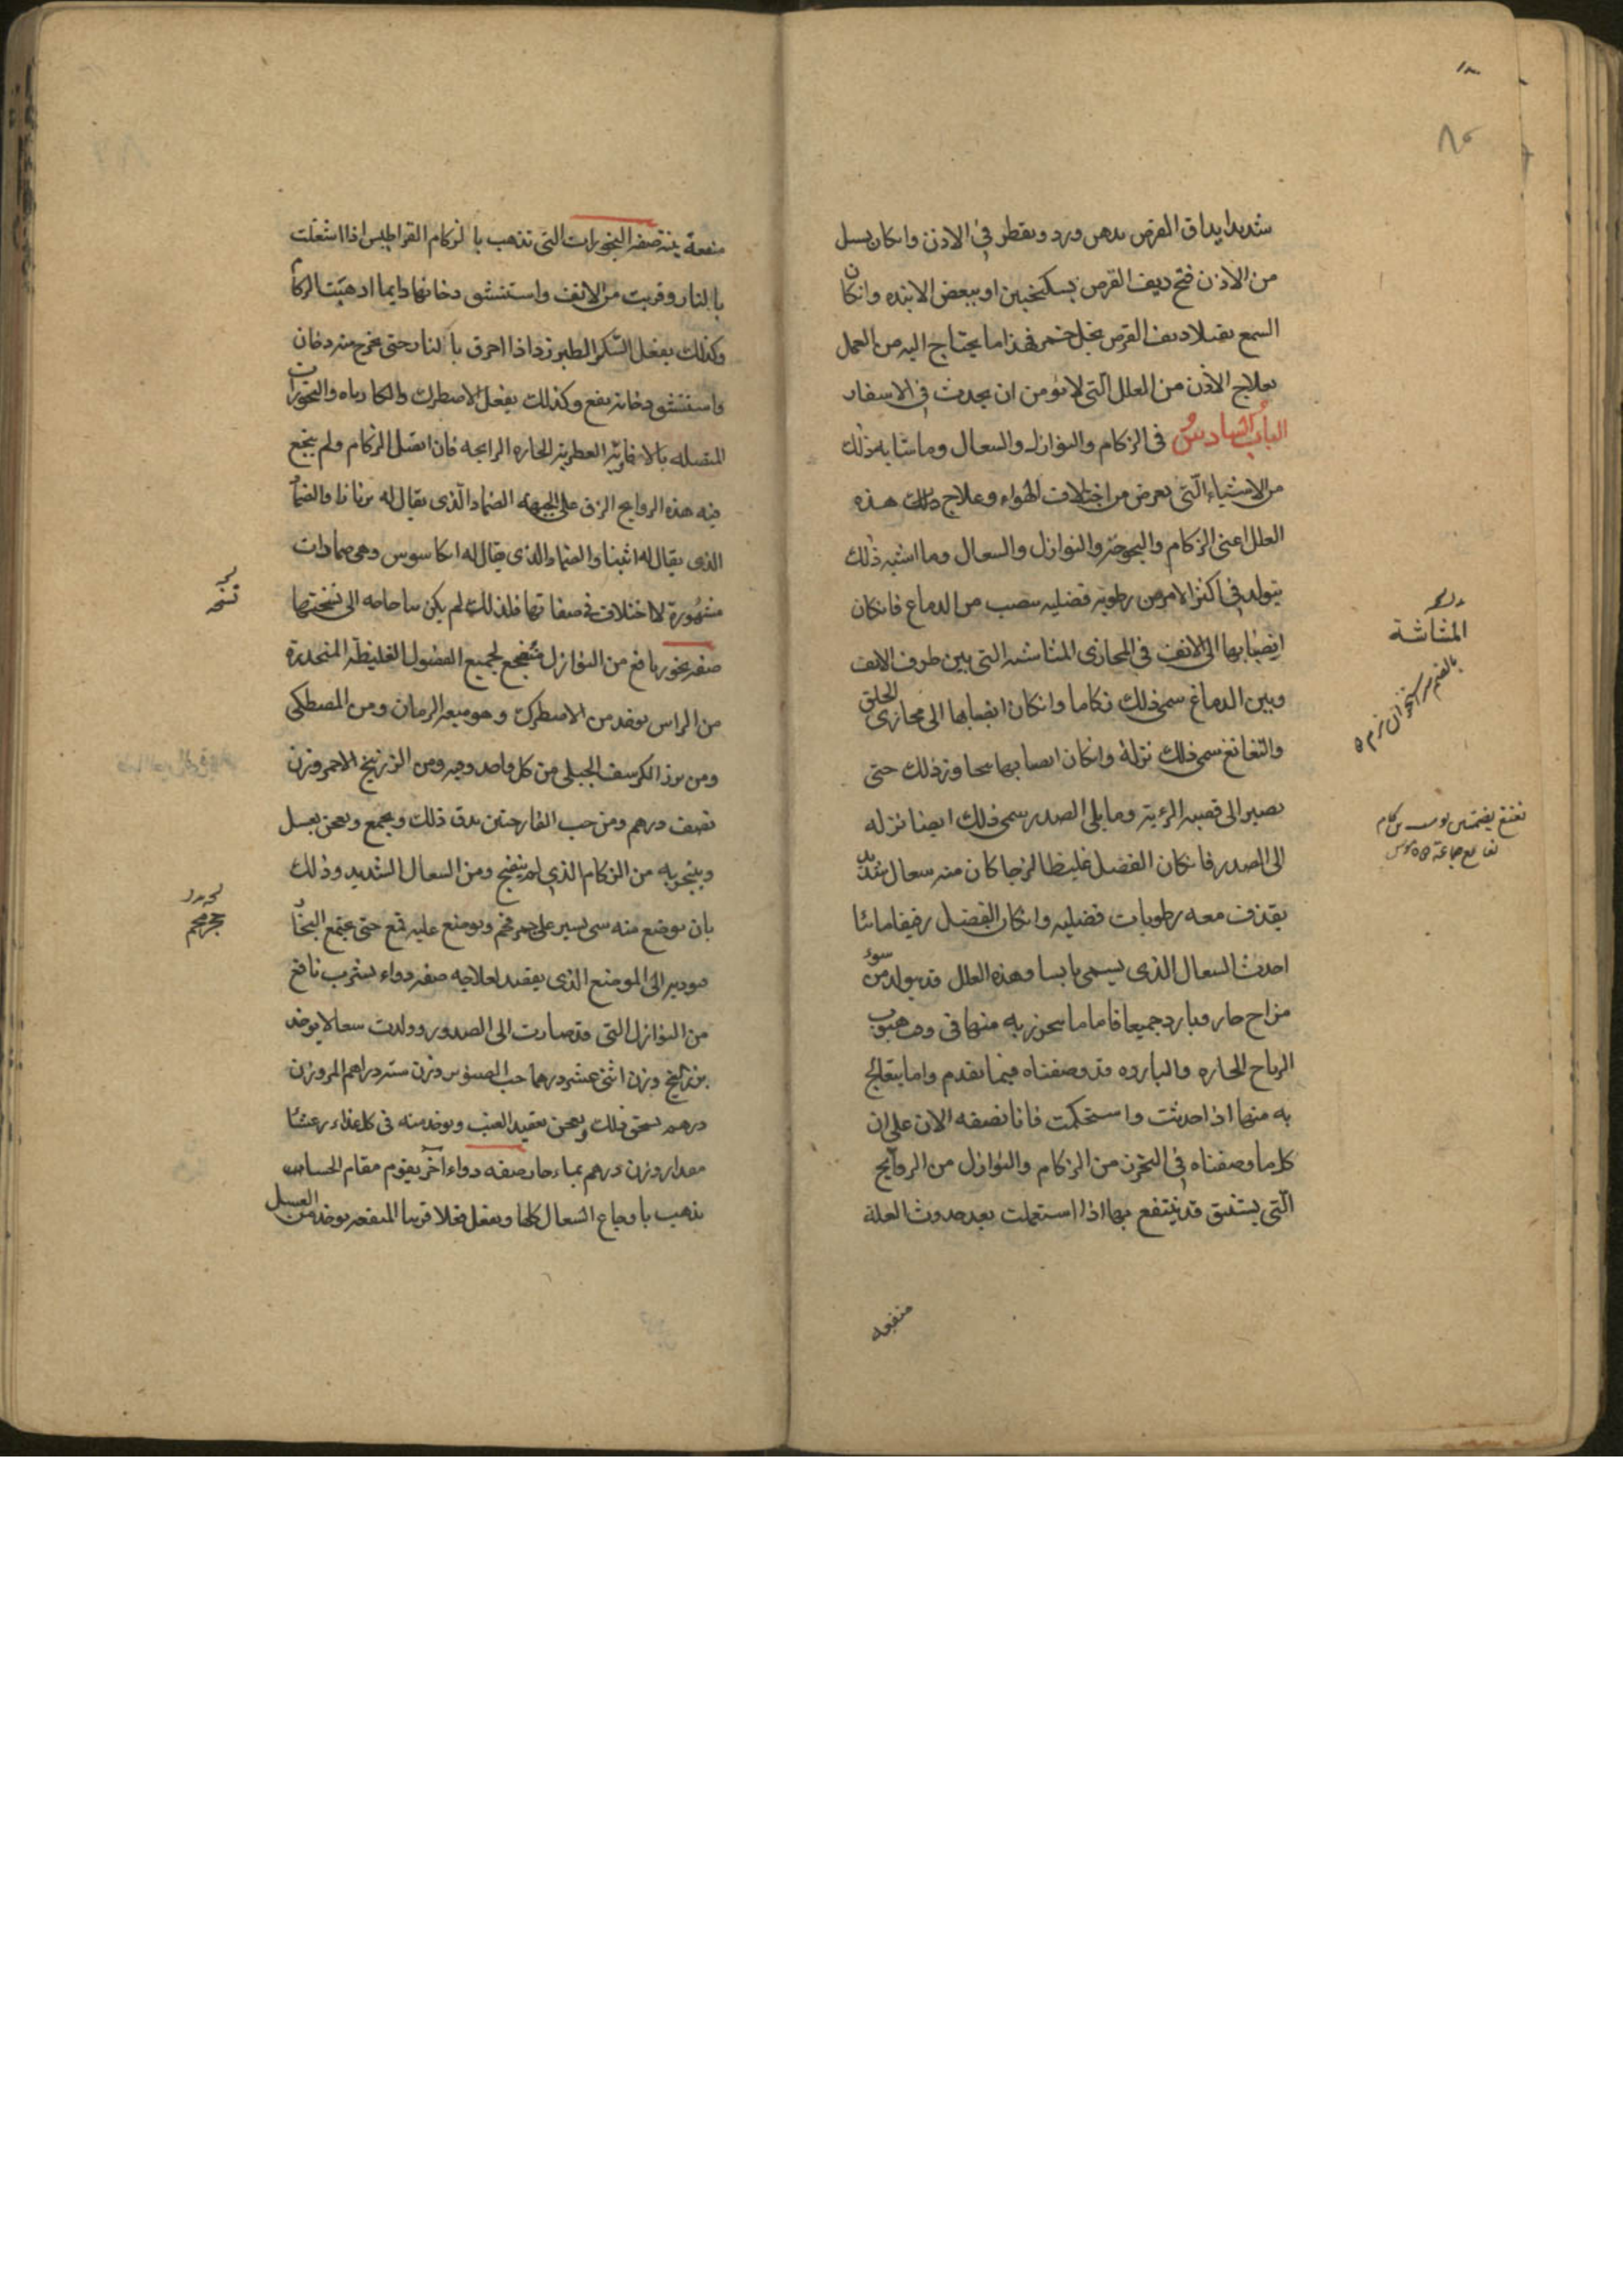 شديدا يداف القرص بدهن ورد ويقطر في الاذن وانكان يسيل
من الاذن قيح ديف القرص بسكنجبين او ببعض الانبذه وانكان
السمع ثقيلا ديف القرص بخل خمر فهذا ما يحتاج اليه من العمل
بعلاج الاذن من العلل التي لا يومن ان يحدث في الاسفار
الباب السادس في الزكام والنوازل والسعال وما شابه ذلك
من الاشياء التي تعرض من اختلاف الهواء وعلاج ذلك هذه
العلل اعنى الزكام والبحوحة والنوازل والسعال وما اشبه ذلك
يتولد في اكثر الامر من رطوبة فضليه تنصب من الدماغ فانكان
انصبابها الى الانف في المجازى المشاشية التي بين طرف الانف
وبين الدماغ سمى ذلك زكاما وانكان انصبابها الى مجازى الحلق
والنغانغ سمى ذلك نزلة وانكان انصبابها يتجاوز ذلك حتى
يصير الى قصبه الرئة وما يلى الصدر سمى ذلك ايضا نزله
الى الصدر فانكان الفضل غليظا لزجا كان منه سعال شديد
يقذف معه رطوبات فضليه وانكان الفضل رقيقا مائيا
احدث السعال الذى يسمى يابسا وهذه العلل قد يتولد من سوء
مزاج حار وبارد جميعا فاما ما يتحرز به منها فى وقت هبوب
الرياح الحاره والبارده قد وصفناه فيما تقدم واما يتعالج
به منها اذا حدثت واستحكمت فانا نصفه الان على ان
كلما وصفناه في التحرز من الزكام والنوازل من الروايح
التي يستنشق قد ينتفع بها اذا استعملت بعد حدوث العلة
منفعه
المشاشة
منفعة بينة صفة البخورات التي تذهب بالزكام القراطيس اذا اشتعلت
بالنار وقربت من الانف واستنشق دخانها دايما اذهبت الزكام
وكذلك يفعل السكر الطبرزد اذا احرق بالنار حتى يخرج منه دخان
واستنشق دخانه نفع وكذلك يفعل الاصطرك والكارباه والبخورات
المتصله بالافاوية العطرية الحاره الرايحه فان اتصل الزكام ولم ينجع
فيه هذه الروايح الزق على الجبهه الضماد الذى يقال له برنازا والضماد
الذى يقال له اثينا والضماد الذى يقال له اكاسوس وهى ضمادات
مشهورة لا اختلاف في صفاتها فلذلك لم يكن بنا حاجه الى نسختها
صفه بخور نافع من النوازل منضج لجميع الفضول الغليظة المنحدرة
من الراس يوخذ من الاصطرك وهو ميعه الرمان ومن المصطكى
ومن بزر الكرفس الجبلى من كل واحد وقيه ومن الزرنيخ الاحمر وزن
نصف درهم ومن حب الغار حبتين يدق ذلك ويجمع ويعجن بعسل
ويتبخر به من الزكام الذى لم ينضج ومن السعال الشديد وذلك
بان يوضع منه شى يسير على جمر فحم ويوضع عليه قمع حتى يجتمع البخار
ويدير الى الموضع الذى يقصد لعلاجه صفه دواء يشرب نافع
من النوازل التي قد صارت الى الصدور وولدت سعالا يوخذ
بزربنج وزن اثنى عشر درهما حب الصنوبر وزن سته دراهم المر وزن
درهم يسحق ذلك ويعجن بعقيد العنب ويوخذ منه فى كل غداء وعشا
مقدار وزن درهم بماء حار صفه دواء اخر يقوم مقام الحساء
يذهب باوجاع السعال كلها ويفعل فعلا قريب المنفعه يوخذ من العسل
نسخه
جمر فحم